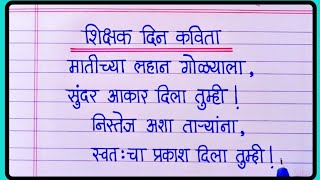 शिक्षक दिन कविता
मातीच्या लहान गोळ्याला,
सुंदर आकार दिला तुम्ही!
निस्तेज अशा ताऱ्यांना,
स्वतःचा प्रकाश दिला तुम्ही!